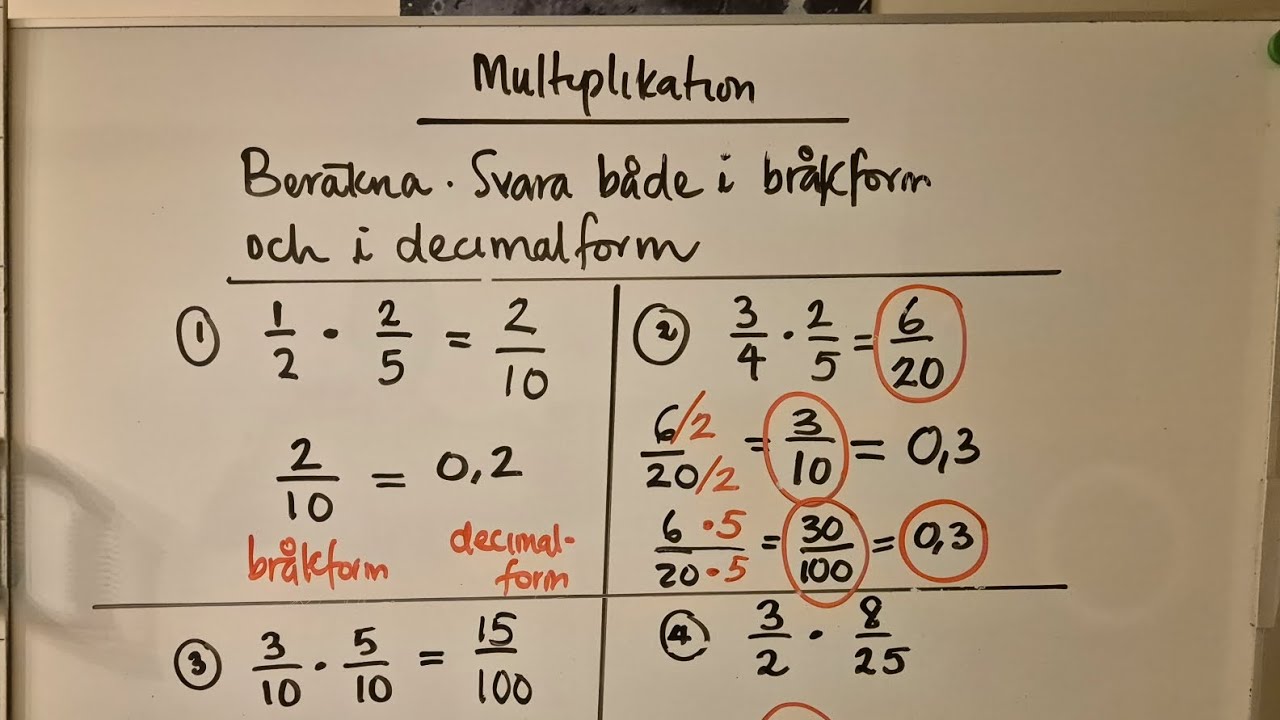 Multiplikation
Beräkna. Svara både i bråkform
och i decimalform
① 1/2 · 2/5 = 2/10
2/10 = 0,2
bråkform decimal-
form
② 3/4 · 2/5 = 6/20
6/2 / 20/2 = 3/10 = 0,3
6·5 / 20·5 = 30/100 = 0,3
③ 3/10 · 5/10 = 15/100
④ 3/2 · 8/25